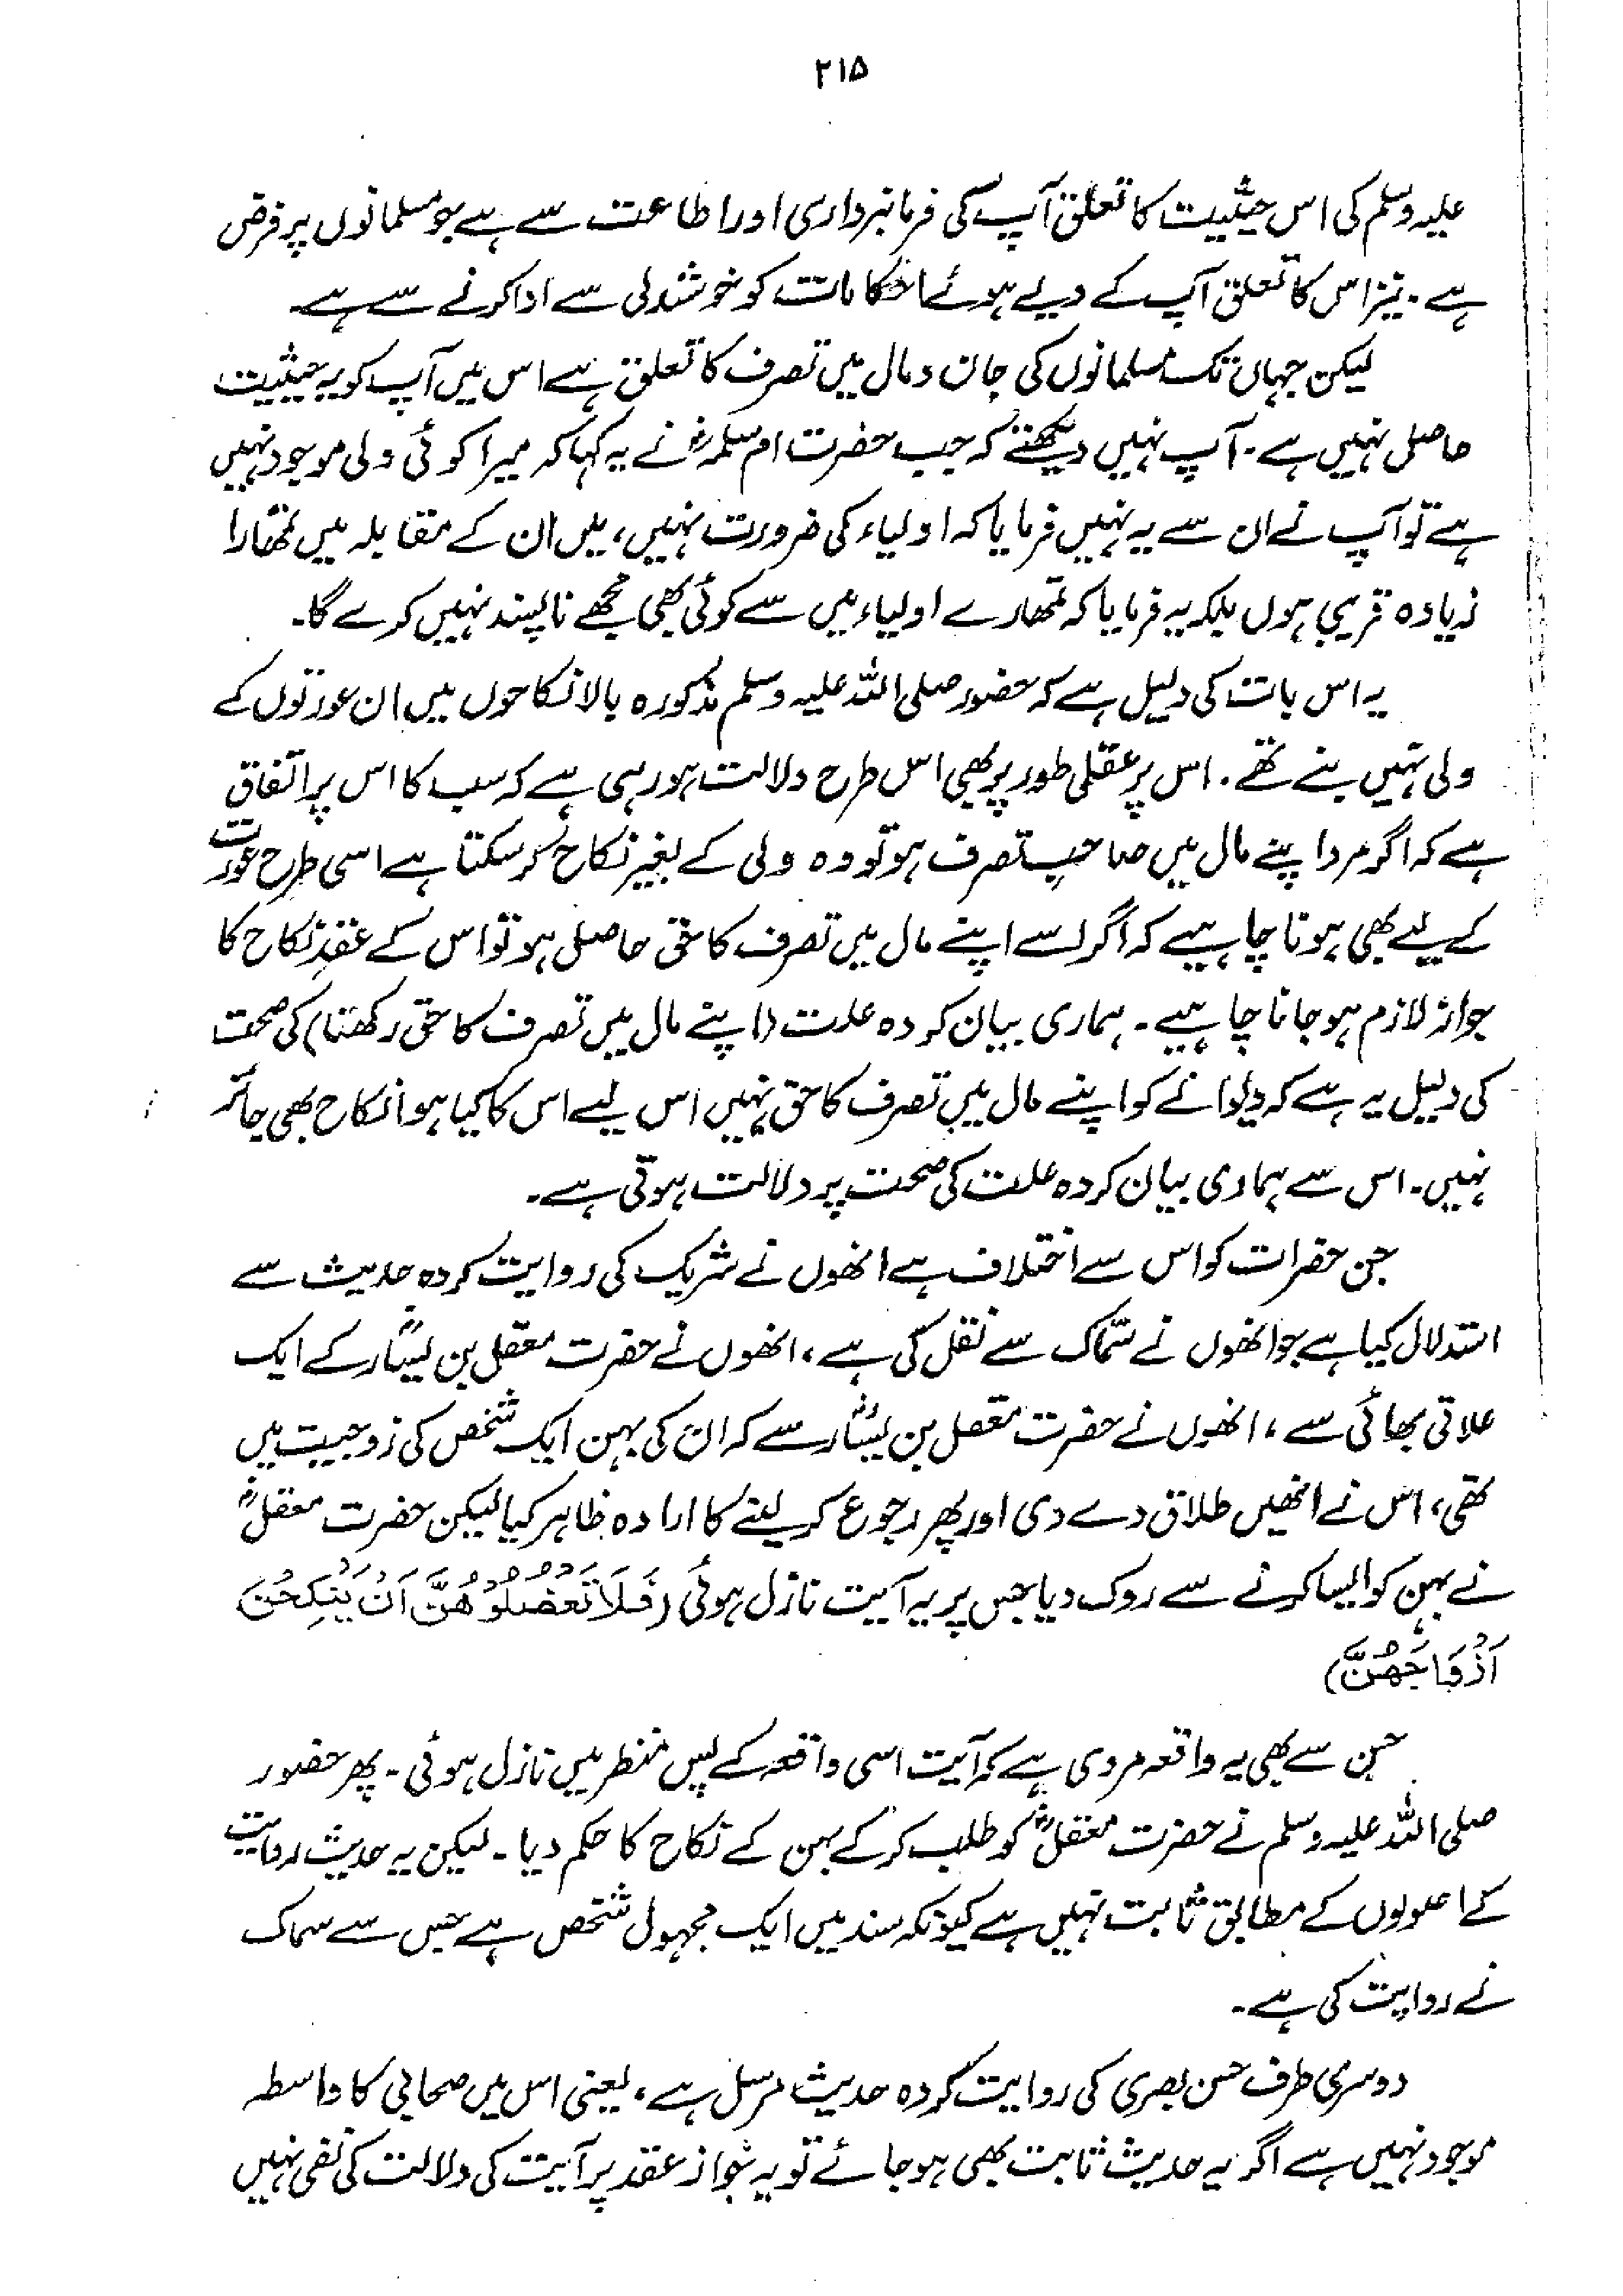 ۲۱۵
علیہ وسلم کی اس حیثیت کا تعلق آپ کی فرمانبرداری اور اطاعت سے ہے جو مسلمانوں پر فرض
ہے۔ نیز اس کا تعلق آپ کے دیے ہوئے احکامات کو خوشدلی سے ادا کرنے سے ہے۔
لیکن جہاں تک مسلمانوں کی جان و مال میں تصرف کا تعلق ہے اس میں آپ کو یہ حیثیت
حاصل نہیں ہے۔ آپ نہیں دیکھتے کہ جب حضرت ام سلمہؓ نے یہ کہا کہ میرا کوئی ولی موجود نہیں
ہے تو آپ نے ان سے یہ نہیں فرمایا کہ اولیاء کی ضرورت نہیں، میں ان کے مقابلہ میں تمھارا
زیادہ قریبی ہوں بلکہ یہ فرمایا کہ تمھارے اولیاء میں سے کوئی بھی مجھے ناپسند نہیں کرے گا۔
یہ اس بات کی دلیل ہے کہ حضور صلی اللہ علیہ وسلم مذکورہ بالا نکاحوں میں ان عورتوں کے
ولی نہیں بنے تھے۔ اس پر عقلی طور پر بھی اس طرح دلالت ہو رہی ہے کہ سب کا اس پر اتفاق
ہے کہ اگر مرد اپنے مال میں صاحبِ تصرف ہو تو وہ ولی کے بغیر نکاح کر سکتا ہے اسی طرح عورت
کے لیے بھی ہونا چاہیے کہ اگر اسے اپنے مال میں تصرف کا حق حاصل ہو تو اس کے عقدِ نکاح کا
جواز لازم ہو جانا چاہیے۔ ہماری بیان کردہ علت (اپنے مال میں تصرف کا حق رکھنا) کی صحت
کی دلیل یہ ہے کہ دیوانے کو اپنے مال میں تصرف کا حق نہیں اس لیے اس کا کیا ہوا نکاح بھی جائز
نہیں۔ اس سے ہماری بیان کردہ علت کی صحت پر دلالت ہوتی ہے۔
جن حضرات کو اس سے اختلاف ہے انھوں نے شریک کی روایت کردہ حدیث سے
استدلال کیا ہے جو انھوں نے سماک سے نقل کی ہے، انھوں نے حضرت معقل بن یسارؓ کے ایک
علاتی بھائی سے، انھوں نے حضرت معقل بن یسارؓ سے کہ ان کی بہن ایک شخص کی زوجیت میں
تھی، اس نے انھیں طلاق دے دی اور پھر رجوع کر لینے کا ارادہ ظاہر کیا لیکن حضرت معقلؓ
نے بہن کو ایسا کرنے سے روک دیا جس پر یہ آیت نازل ہوئی (فَلَا تَعْضُلُوْهُنَّ اَنْ يَّنْكِحْنَ
اَزْوَاجَهُنَّ)
حسن سے بھی یہ واقعہ مروی ہے کہ آیت اسی واقعہ کے پس منظر میں نازل ہوئی۔ پھر حضور
صلی اللہ علیہ وسلم نے حضرت معقلؓ کو طلب کر کے بہن کے نکاح کا حکم دیا۔ لیکن یہ حدیث روایت
کے اصولوں کے مطابق ثابت نہیں ہے کیونکہ سند میں ایک مجہول شخص ہے جس سے سماک
نے روایت کی ہے۔
دوسری طرف حسن بصری کی روایت کردہ حدیث مرسل ہے، یعنی اس میں صحابی کا واسطہ
موجود نہیں ہے اگر یہ حدیث ثابت بھی ہو جائے تو یہ جواز عقد پر آیت کی دلالت کی نفی نہیں